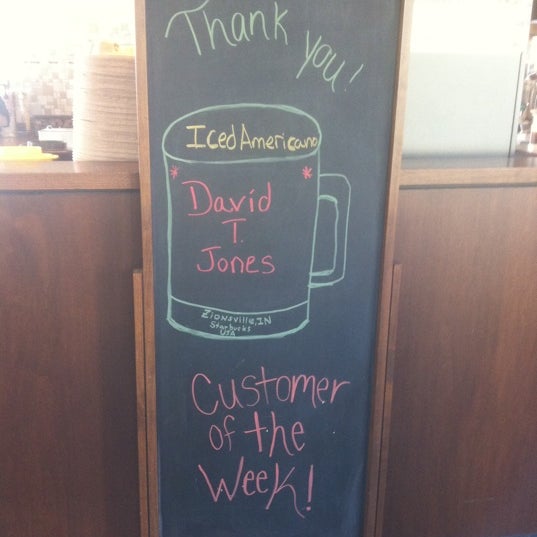 Thank you!
Iced Americano
* David *
T.
Jones
Zionsville, IN
Starbucks
USA
Customer
of the
Week!